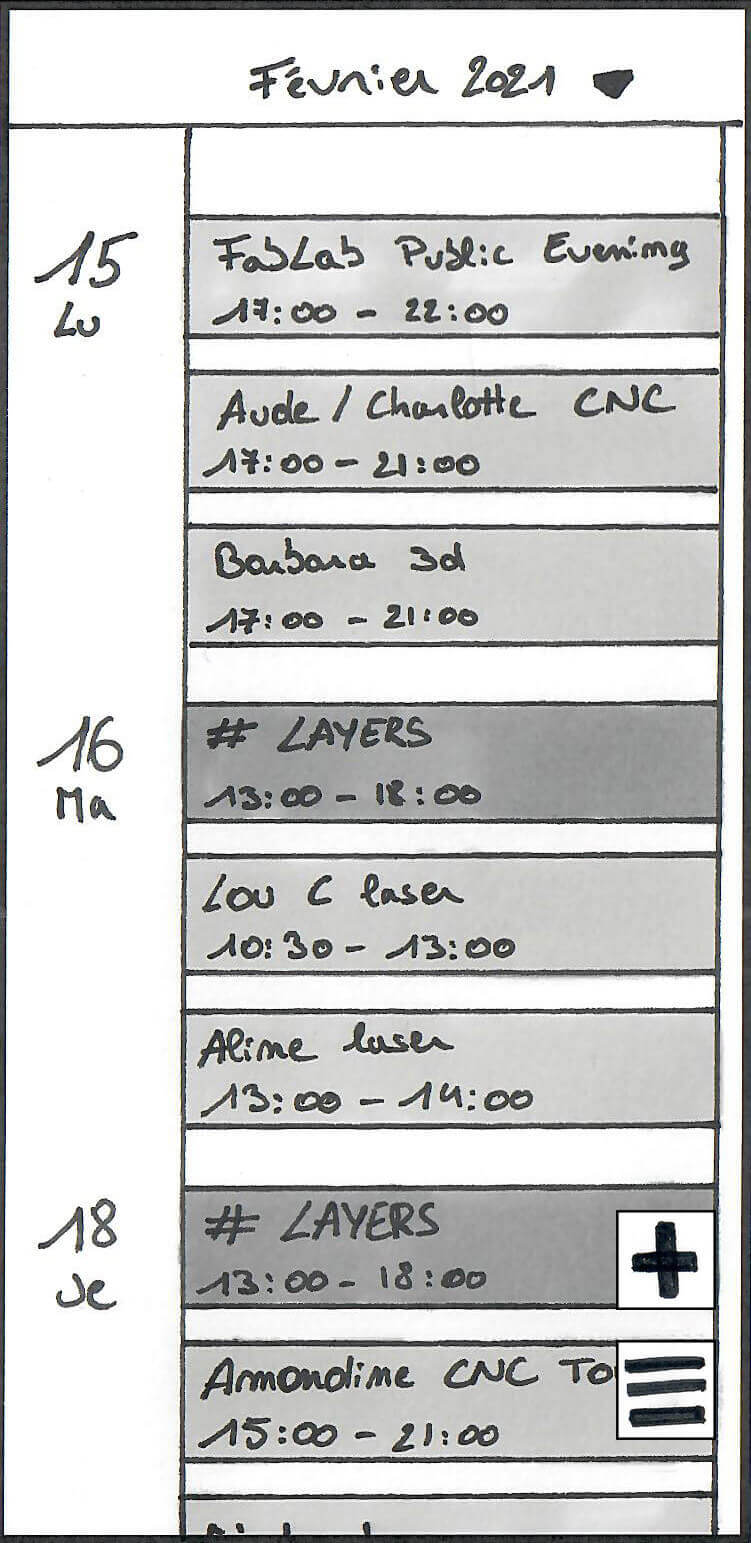 Février 2021
15
Lu
FabLab Public Evening
17:00 - 22:00
Aude / Charlotte CNC
17:00 - 21:00
Barbara 3d
17:00 - 21:00
16
Ma
# LAYERS
13:00 - 18:00
Lou C laser
10:30 - 13:00
Aline laser
13:00 - 14:00
18
Je
# LAYERS
13:00 - 18:00
Amandine CNC
15:00 - 21:00